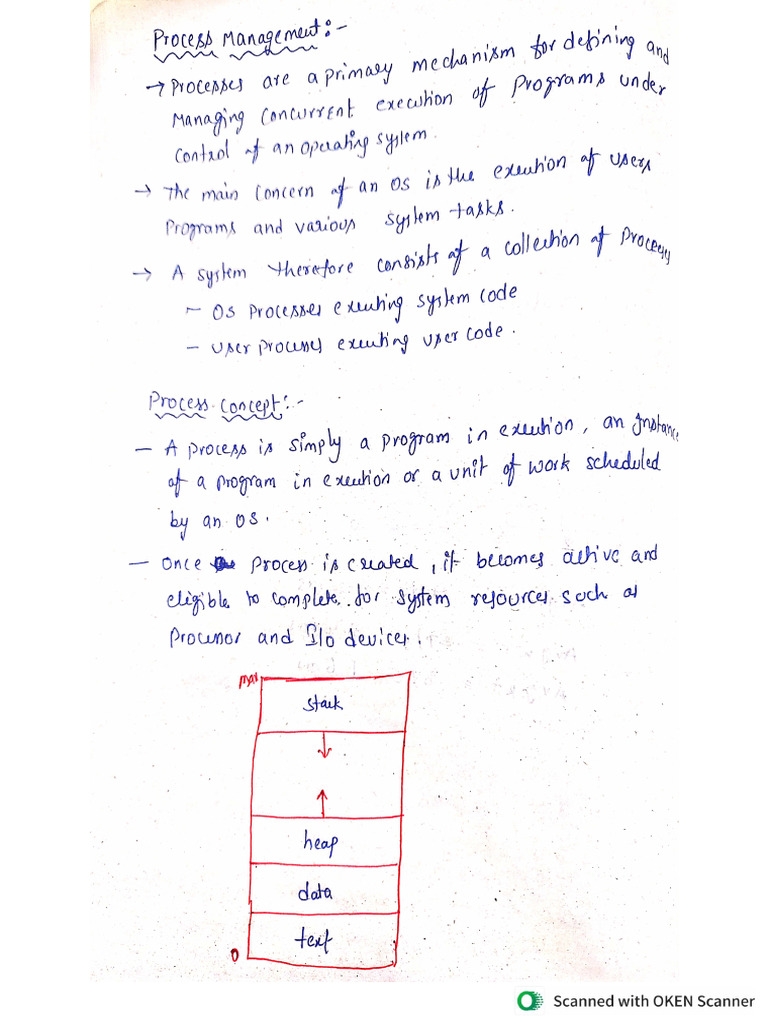 Process Management:-
→ Processes are a primary mechanism for defining and
Managing concurrent execution of Programs under
control of an operating system.
→ The main concern of an OS is the exeution of users
Programs and various system tasks.
→ A system therefore consists of a collection of Process
- OS Processes exeuting system code
- user processes exeuting user code.
Process Concept:-
- A process is simply a program in exeution, an Instance
of a program in exeution or a unit of work scheduled
by an OS.
- Once Process is created, it becomes active and
eligible to complete for system resources such as
Processor and I/o devices.
max
stack
↓
↑
heap
data
text
0
Scanned with OKEN Scanner